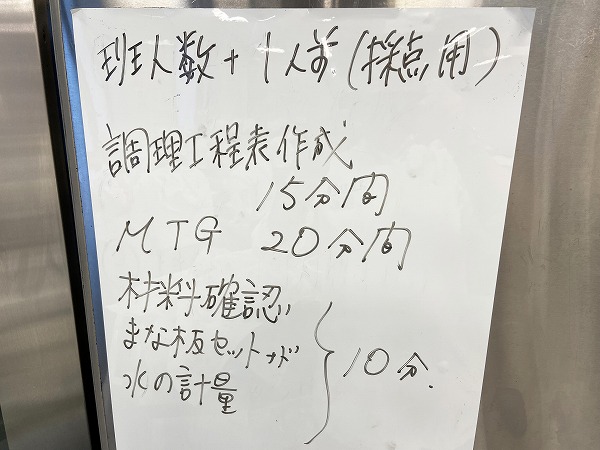 班人数+1人前(採点用)
調理工程表作成
15分間
MTG 20分間
材料確認
まな板セットナド
水の計量
10分.